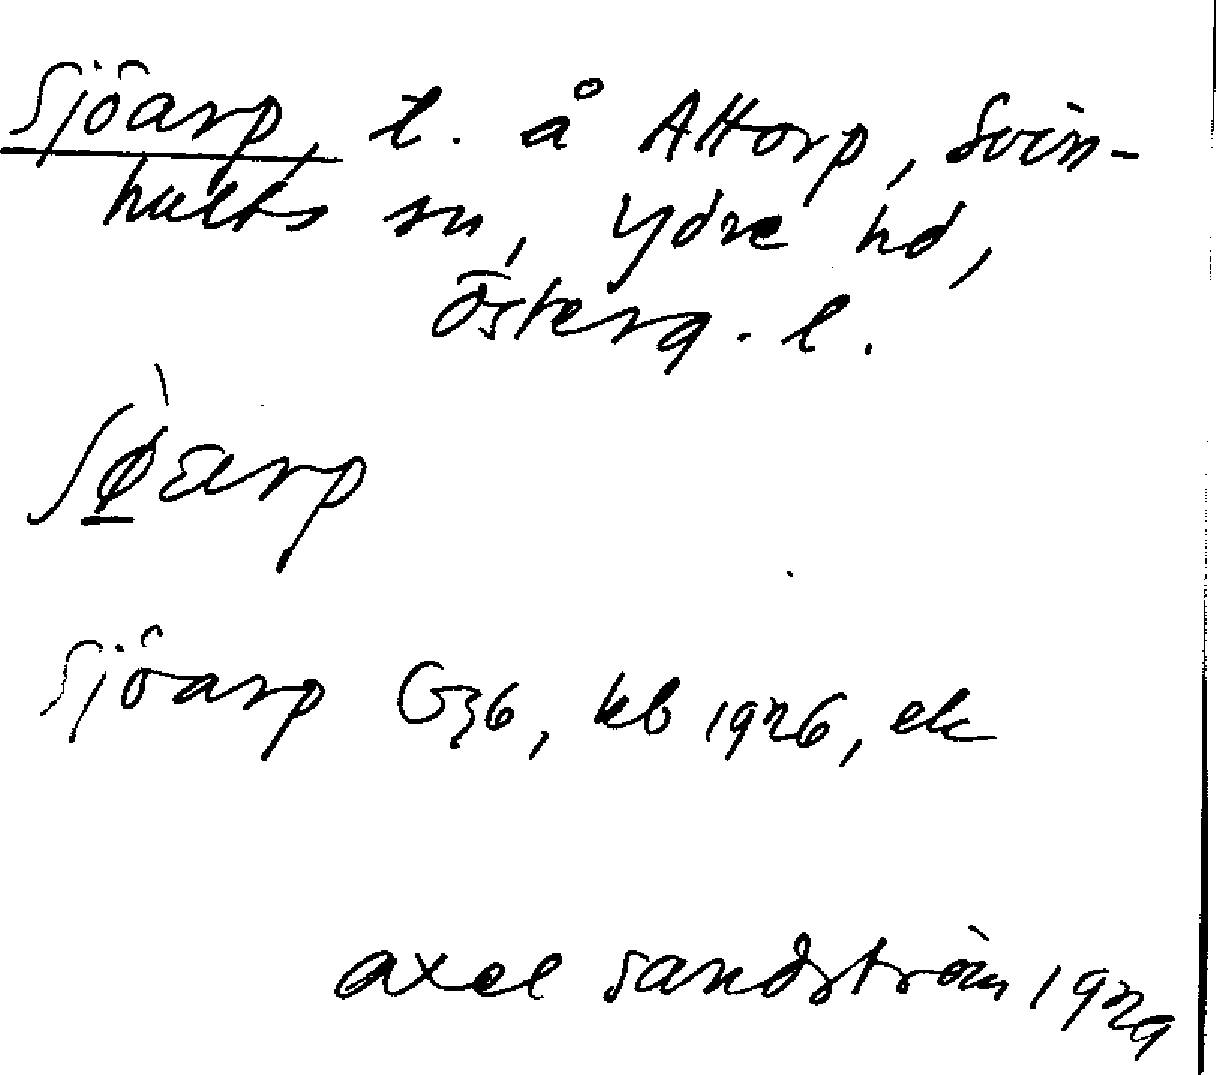 Sjöarp, l. å Attorp, Svin-
hults sn, Ydre hd,
Österg. l.
Sjöarp G36, kb 1926, ek
Axel Sandström 1929